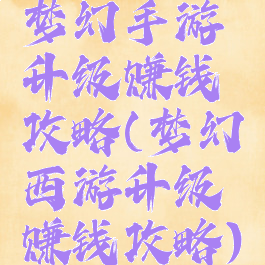 梦幻手游
升级赚钱
攻略(梦幻
西游升级
赚钱攻略)